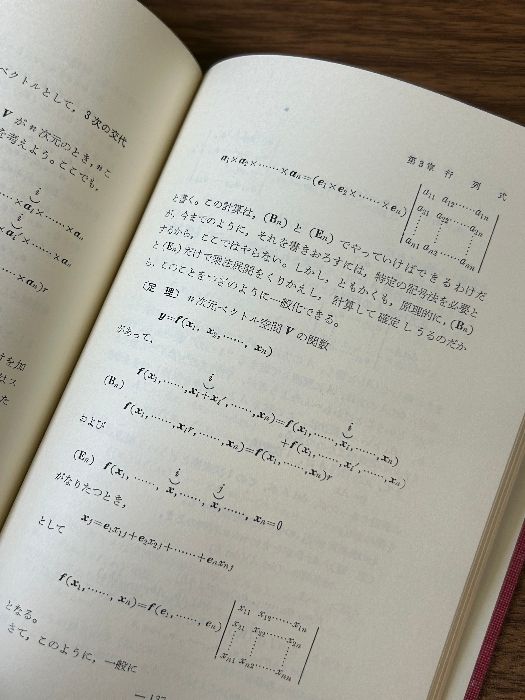 ベクトルとして，3次の交代
V が n 次元のとき，nこ
を考えよう。ここでも，
×a_n)r
第3章 行 列 式
a_1×a_2×……×a_n=(e_1×e_2×……×e_n)
a_11 a_12……a_1n
a_21 a_22……a_2n
a_n1 a_n2……a_nn
と書く。この計算は，(B_n) と (E_n) でやっていけばできるわけだ
が，今までのように，それを書きおろすには，特定の記号法を必要と
するから，ここではやらない。しかし，ともかくも，原理的に，(B_n)
と (E_n) だけで乗法展開をくりかえし，計算して確定しうるのだか
ら，このことをつぎのように一般化できる。
〔定 理〕 n次元ベクトル空間 V の関数
y=f(x_1, x_2, ……, x_n)
があって，
i i
(B_n) f(x_1,……,x_i+x_i′,……,x_n)=f(x_1,……,x_i,……,x_n)
+f(x_1,……,x_i′,……,x_n)
f(x_1,……,x_ir,……,x_n)=f(x_1,……,x_n)r
および
i j
(E_n) f(x_1, ……, x,……, x,……, x_n=0
がなりたつとき，
x_j=e_1x_1j+e_2x_2j+……+e_nx_nj
として
f(x_1,……, x_n)=f(e_1,……, e_n)
x_11 x_12……x_1n
x_21 x_22……x_2n
x_n1 x_n2……x_nn
となる。
さて，このように，一般に